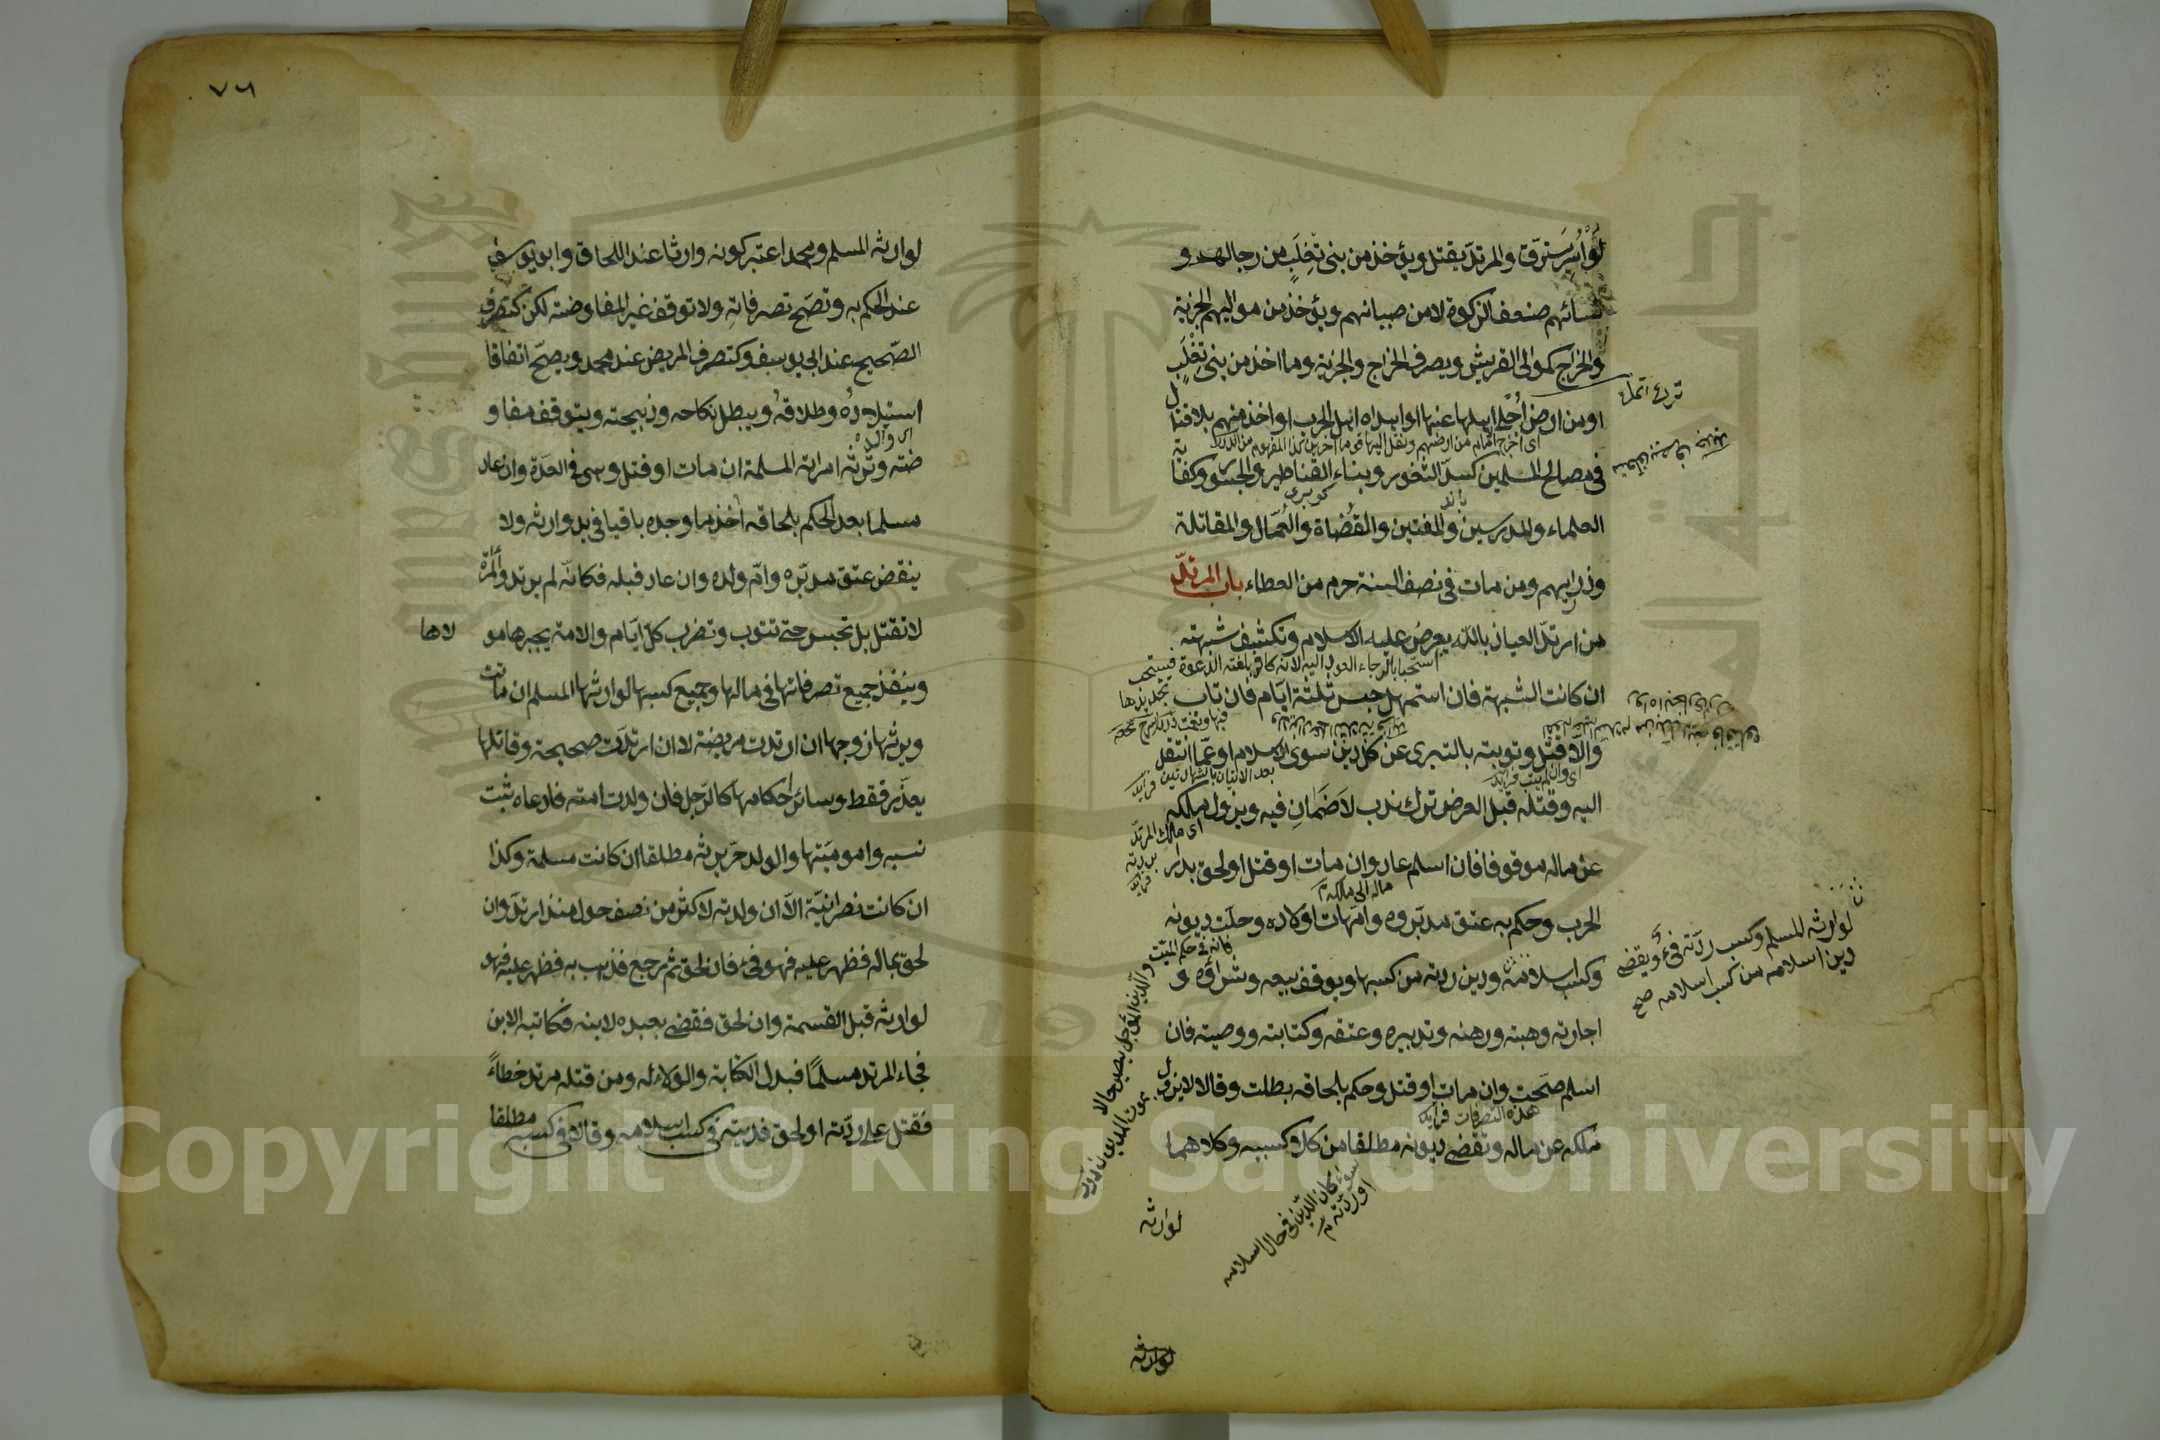 لو أسر يسترق والمرتد يقتل ويؤخذ من بنى تغلب من رجالهم و
نسائهم ضعف الزكوة لا من صبيانهم ويؤخذ من مواليهم الجزية
والخراج كموالى القريش ويصرف الخراج والجزية وما اخذ من بنى تغلب
او من ارض اجلى اهلها عنها او اهداه اهل الحرب او اخذ منهم بلا قتال
فى مصالح المسلمين كسد الثغور وبناء القناطير والجسور وكفاية
العلماء والمدرسين والمفتين والقضاة والعمال والمقاتلة
وذراريهم ومن مات فى نصف السنة حرم من العطاء باب المرتد
من ارتد العياذ بالله يعرض عليه الاسلام وتكشف شبهته
ان كانت الشبهة فان استمهل حبس ثلثة ايام فان تاب
والا قتل وتوبته بالتبرى عن كل دين سوى الاسلام او عما انتقل
اليه وقتله قبل العرض ترك ندب لا ضمان فيه ويزول ملكه
عن ماله موقوفا فان اسلم عاد وان مات او قتل او لحق بدار
الحرب وحكم به عتق مدبروه وامهات اولاده وحلت ديونه
وكسب اسلامه ودين ردته من كسبها ويوقف بيعه وشراؤه و
اجارته وهبته ورهنه وتدبيره وعتقه وكتابته ووصيته فان
اسلم صحت وان مات او قتل وحكم بلحاقه بطلت وقالا لا يزول
ملكه عن ماله وتقضى ديونه مطلقا من كلا كسبيه وكلاهما
لوارثه
لوارثه المسلم وكسب ردته فىء ويقضى
دين اسلامه من كسب اسلامه صح
سواء كان الدين فى حال اسلامه
او ردته
لوارثه
٧٦
لوارثه المسلم ومحمد اعتبر كونه وارثا عند اللحاق وابو يوسف
عند الحكم به وتصح تصرفاته ولا توقف غير المفاوضة لكن كتصرف
الصحيح عند ابى يوسف وكتصرف المريض عند محمد ويصح اتفاقا
استيلاده وطلاقه ويبطل نكاحه وذبيحته ويتوقف مفاو
ضته وترثه امراته المسلمة ان مات او قتل وهى فى العدة وان عاد
مسلما بعد الحكم بلحاقه اخذ ما وجده باقيا فى يد وارثه ولا
ينقض عتق مدبره وام ولده وان عاد قبله فكانه لم يرتد والمراة
لا تقتل بل تحبس حتى تتوب وتضرب كل ايام والامة يجبرها مو
لاها
وينفذ جميع تصرفاتها فى مالها وجميع كسبها لوارثها المسلم ان ماتت
ويرثها زوجها ان ارتدت مريضة لا ان ارتدت صحيحة وقاتلها
يعذر فقط وسائر احكامها كالرجل فان ولدت امته فادعاه ثبت
نسبه واموميتها والولد حر يرثه مطلقا ان كانت مسلمة وكذا
ان كانت نصرانية الا ان ولدته لاكثر من نصف حول منذ ارتد وان
لحق بماله فظهر عليه فهو فىء فان لحق ثم رجع فذهب به فظهر عليه فهو
لوارثه قبل القسمة وان لحق فقضى بعبده لابنه فكاتبه الابن
فجاء المرتد مسلما فبدل الكتابة والولاء له ومن قتله مرتد خطاءً
فقتل على ردته او لحق فديته فى كسب اسلامه وقالا فى كسبيه مطلقا
Copyright © King Saud University
1957